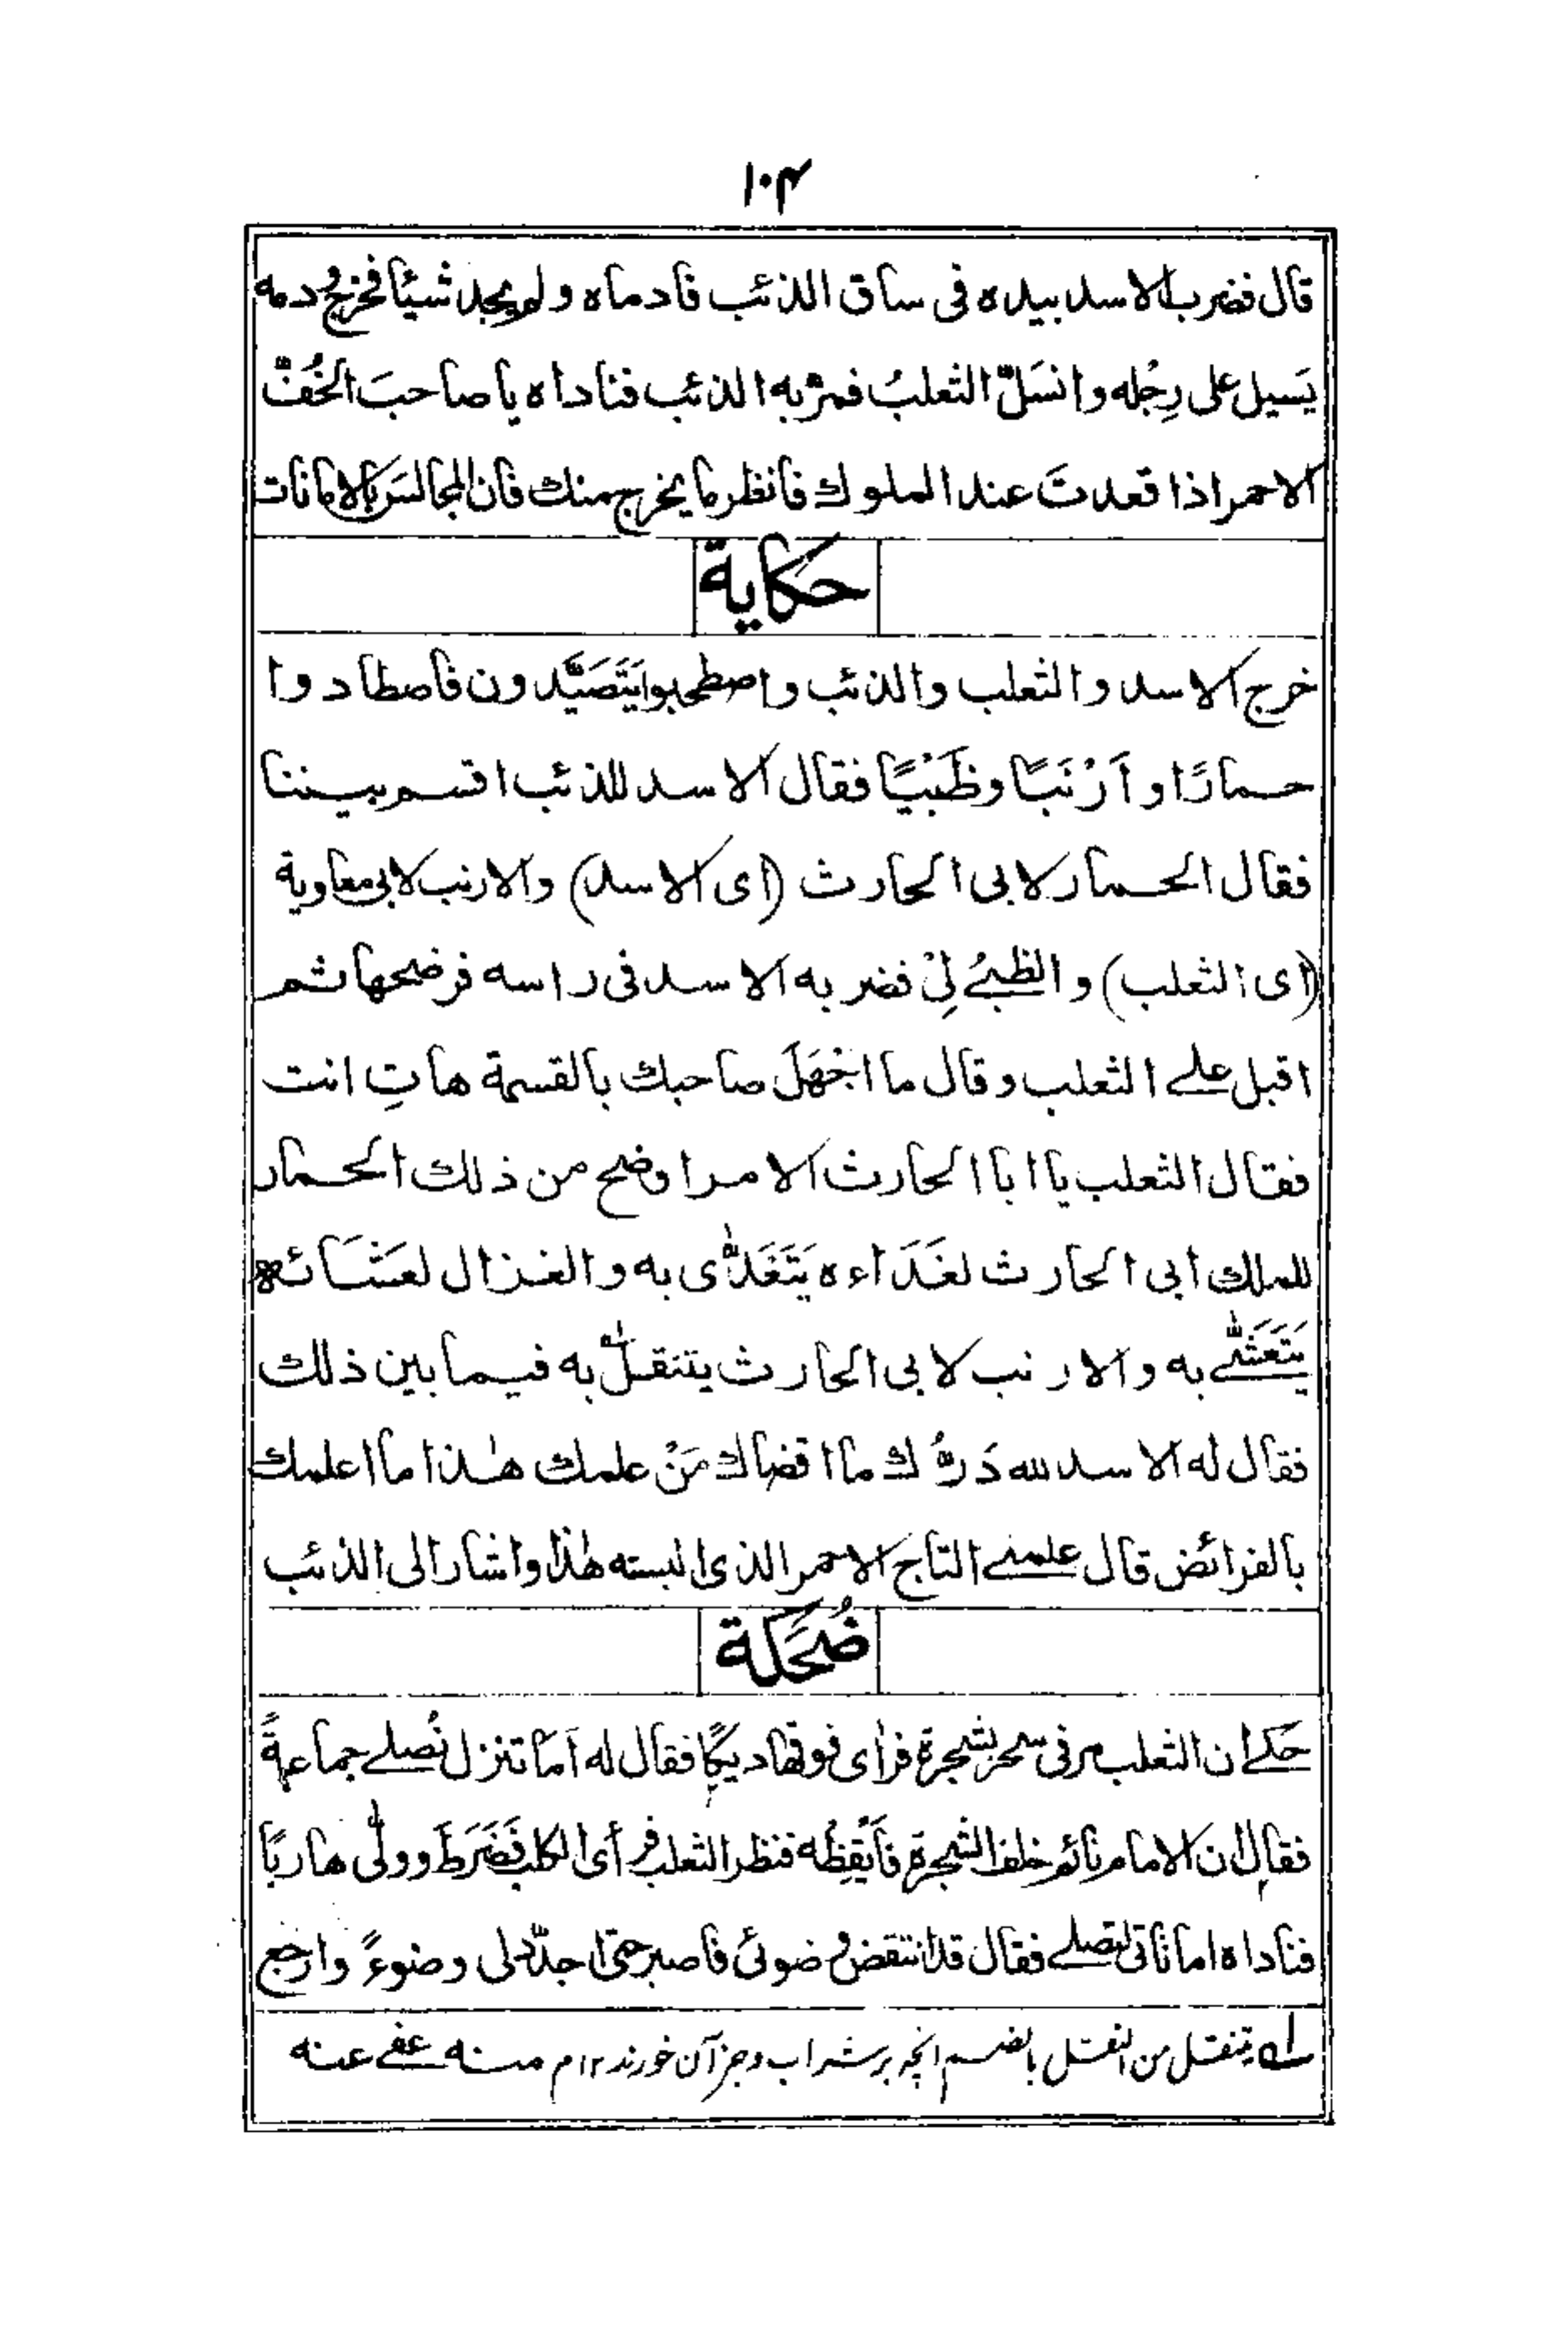 ۱۰۴
قال فضرب الاسد بيده فى ساق الذئب فادماه ولم يجد شيئا فخرج ودمه
يَسيل على رِجْله وانسَلَّ الثعلبُ فمرَّ به الذئب فناداه يا صاحبَ الخُفّ
الاحمر اذا قعدتَ عند الملوك فانظر ما يخرج منك فان المجالسَ بالامانات
حكاية
خرج الاسد والثعلب والذئب واصطحبوا يَتَصَيَّدون فاصطادوا
حمارًا و اَرْنَبًا وظَبْيًا فقال الاسد للذئب اقسم بيننا
فقال الحمار لابى الحارث (اى الاسد) والارنب لابى معاوية
(اى الثعلب) والظبىُ لِىْ فضربه الاسد فى راسه فرضحها ثم
اقبل على الثعلب وقال ما اجْهَلَ صاحبك بالقسمة هاتِ انت
فقال الثعلب يا ابا الحارث الامر اوضح من ذلك الحمار
للملك ابى الحارث لغَدَاءه يَتَغَدّٰى به والغزال لعَشَائه
يَتَعَشّٰى به والارنب لابى الحارث يتنقلُ به فيما بين ذلك
فقال له الاسد لله دَرُّك ما اقضاك مَنْ علمك هٰذا ما اعلمك
بالفرائض قال علمنى التاج الاحمر الذى البسته هٰذا واشار الى الذئب
ضُحَكة
حَكى ان الثعلب مر فى سحر بشجرة فرأى فوقها ديكًا فقال له اَمَا تنزل نُصلى جماعةً
فقال ان الامام نائم خلف الشجرة فاَيْقِظْه فنظر الثعلب فرأى الكلب فَضَرَطَ وولّٰى هاربًا
فناداه اما تاتى لنصلى فقال قد انتقض وضوئى فاصبر حتى اجدّد لى وضوءً وارجع
لـه يتنقل من النقل بالضم انچه بر شراب وجز آن خورند ۱۲ م منه عفى عنه